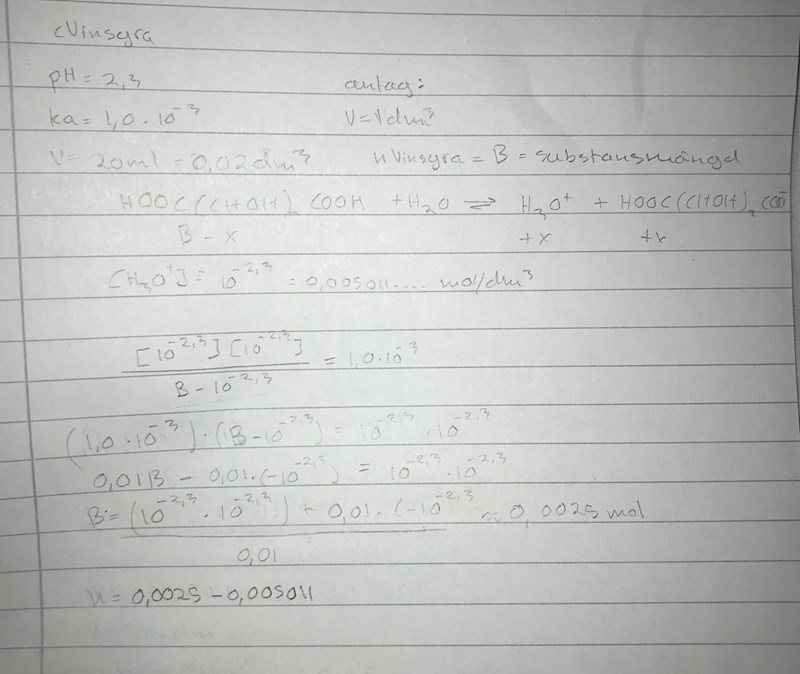 cVinsyra
pH = 2,3 antag:
ka = 1,0 · 10⁻³ V = 1 dm³
V = 20 ml = 0,02 dm³ nVinsyra = B = substansmängd
HOOC(CHOH)₂COOH + H₂O ⇌ H₃O⁺ + HOOC(CHOH)₂COO⁻
B - x +x +x
[H₃O⁺] = 10⁻²,³ = 0,005011.... mol/dm³
[10⁻²,³] [10⁻²,³] / B - 10⁻²,³ = 1,0·10⁻³
(1,0 · 10⁻³) · (B - 10⁻²,³) = 10⁻²,³ · 10⁻²,³
0,01B - 0,01·(-10⁻²,³) = 10⁻²,³ · 10⁻²,³
B = (10⁻²,³ · 10⁻²,³) + 0,01 · (-10⁻²,³ / 0,01 ≈ 0,0025 mol
n = 0,0025 - 0,005011